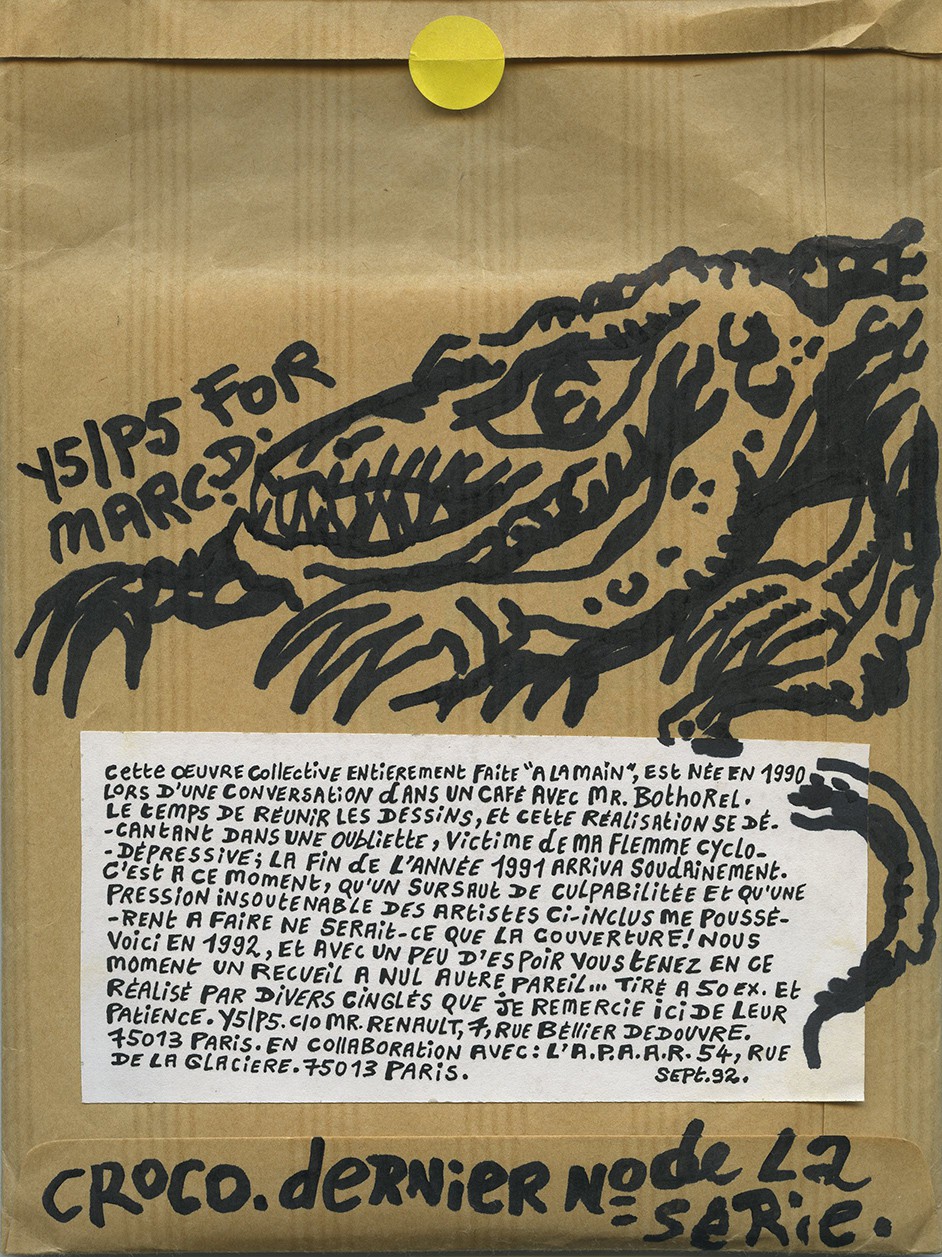 Y5/P5 FOR
MARC.D.
cette ŒUVRE collective ENTIEREMENT FAITE "A LA MAIN", EST NÉE EN 1990
LORS D'UNE CONVERSATION dANS UN CAFÉ AVEC MR. BOTHOREL.
LE TEMPS DE RÉUNIR LES DESSINS, ET CETTE RÉALISATION SE DÉ-
-CANTANT DANS UNE OUBLIETTE, VICTIME de MA FLEMME CYCLO-
-DÉPRESSIVE; LA FIN de L'ANNÉE 1991 ARRIVA SOUDAINEMENT.
C'EST A CE MOMENT, QU'UN SURSAUT DE CULPABILITÉE ET QU'UNE
PRESSION INSOUTENABLE DES ARTISTES CI-INCLUS ME POUSSÉ-
-RENT A FAIRE NE SERAIT-CE QUE LA COUVERTURE! NOUS
VOICI EN 1992, ET AVEC UN PEU D'ESPOIR VOUS TENEZ EN CE
MOMENT UN RECUEIL A NUL AUTRE PAREIL... TIRÉ A 50 EX. ET
RÉALISÉ PAR DIVERS CINGLÉS QUE JE REMERCIE ICI DE LEUR
PATIENCE. Y5/P5. C/O MR. RENAULT, 7, RUE BÉLLIER DEDOUVRE.
75013 PARIS. EN COLLABORATION AVEC: L'A.P.A.A.R. 54, RUE
DE LA GLACIERE. 75013 PARIS. SEPT. 92.
CROCO. dERNIER No de LA
SERIE.